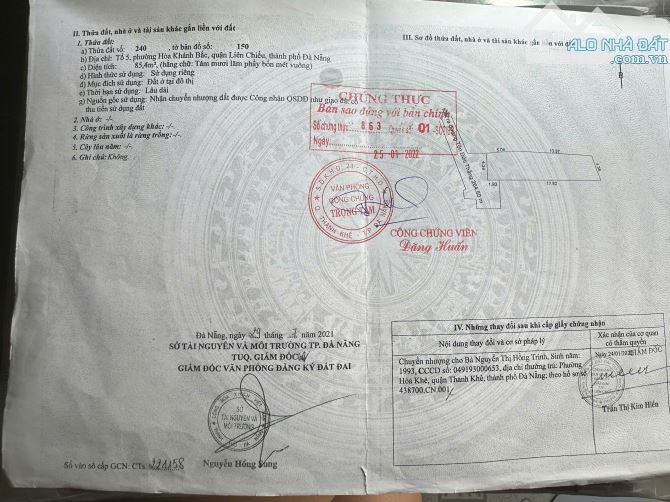 ALO NHÀ ĐẤT
.com.vn
II. Thửa đất, nhà ở và tài sản khác gắn liền với đất
1. Thửa đất:
a) Thửa đất số: 240, tờ bản đồ số: 150
b) Địa chỉ: Tổ 5, phường Hòa Khánh Bắc, quận Liên Chiểu, thành phố Đà Nẵng
c) Diện tích: 85,4m², (bằng chữ: Tám mươi lăm phẩy bốn mét vuông)
d) Hình thức sử dụng: Sử dụng riêng
đ) Mục đích sử dụng: Đất ở tại đô thị
e) Thời hạn sử dụng: Lâu dài
g) Nguồn gốc sử dụng: Nhận chuyển nhượng đất được Công nhận QSDĐ như giao đất có
thu tiền sử dụng đất
2. Nhà ở: -/-
3. Công trình xây dựng khác: -/-
4. Rừng sản xuất là rừng trồng: -/-
5. Cây lâu năm: -/-
6. Ghi chú: Không.
CHỨNG THỰC
Bản sao đúng với bản chính
Số chứng thực: 863 Quyển số: 01
Ngày 25-01-2022
VĂN PHÒNG
CÔNG CHỨNG
TRỌNG TÂM
CÔNG CHỨNG VIÊN
Đặng Huấn
Đà Nẵng, ngày 29 tháng 2021
SỞ TÀI NGUYÊN VÀ MÔI TRƯỜNG TP. ĐÀ NẴNG
TUQ. GIÁM ĐỐC
GIÁM ĐỐC VĂN PHÒNG ĐĂNG KÝ ĐẤT ĐAI
SỞ
TÀI NGUYÊN VÀ
MÔI TRƯỜNG
Nguyễn Hồng
Số vào sổ cấp GCN: CTs
III. Sơ đồ thửa đất, nhà ở và tài sản khác gắn liền với đất
B
IV. Những thay đổi sau khi cấp giấy chứng nhận
Nội dung thay đổi và cơ sở pháp lý
Xác nhận của cơ quan
có thẩm quyền
Chuyển nhượng cho Bà Nguyễn Thị Hồng Trinh, Sinh năm:
1993, CCCD số: 049193000653, địa chỉ thường trú: Phường
Hòa Khê, quận Thanh Khê, thành phố Đà Nẵng; theo hồ sơ số
438700.CN.001
Ngày 24/01/2022 GIÁM ĐỐC
Trần Thị Kim Hiền